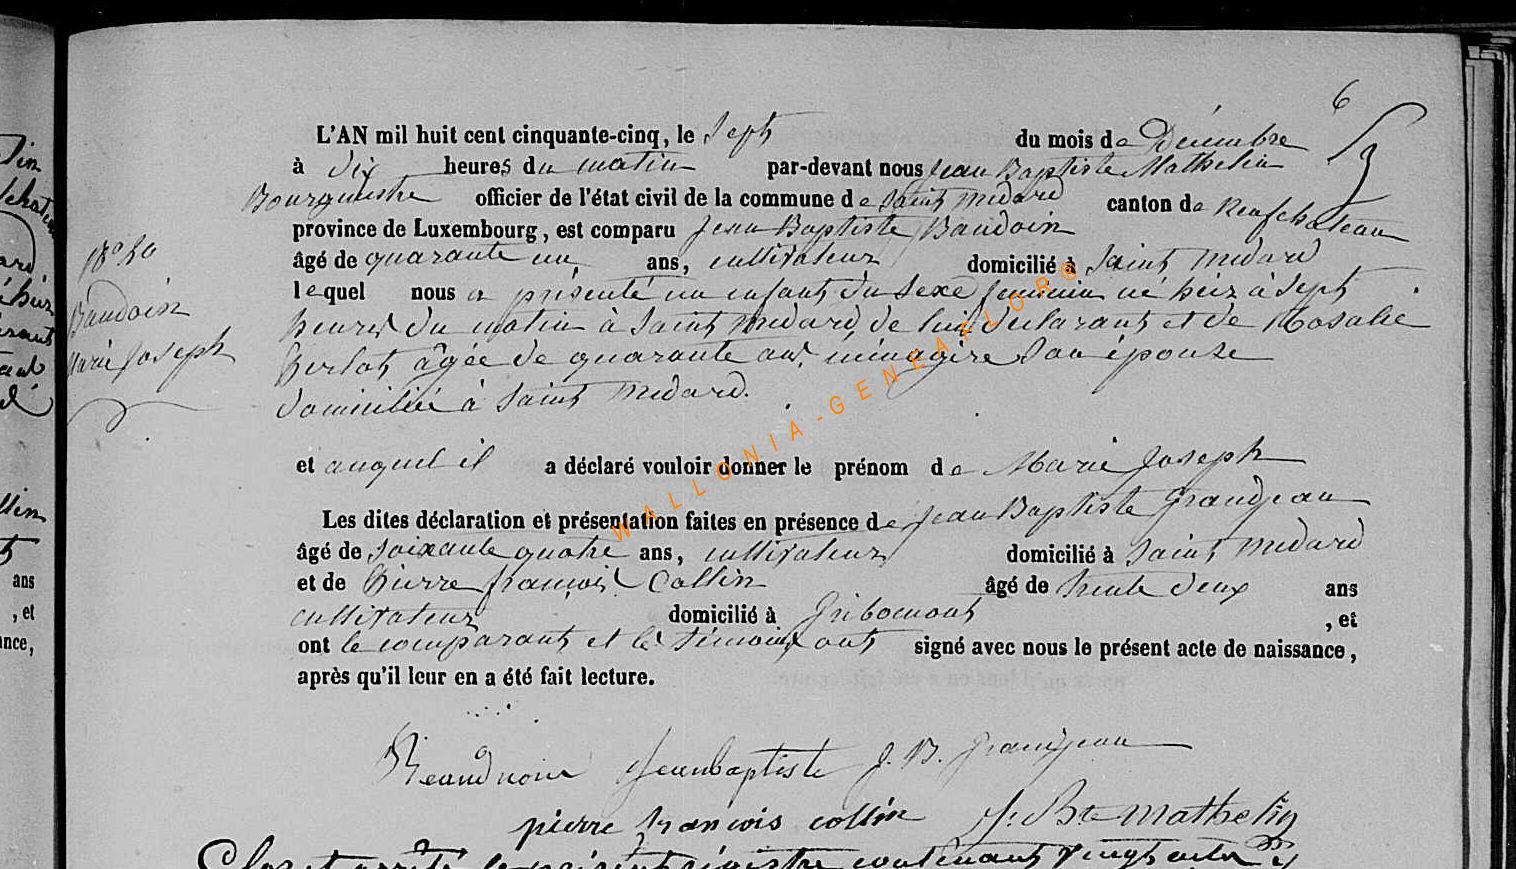 6
L'AN mil huit cent cinquante-cinq, le Sept du mois de Décembre
à dix heures du matin par-devant nous Jean Baptiste Mathelin
Bourgmestre officier de l'état civil de la commune de Saint Médard canton de Neufchateau
province de Luxembourg, est comparu Jean Baptiste Baudoin
âgé de quarante un ans, cultivateur domicilié à Saint Médard
lequel nous a présenté un enfant du sexe feminin né hier à Sept
heures du matin à Saint Médard, de lui déclarant et de Rosalie
âgée de quarante ans, ménagère Son épouse
domiciliée à Saint Médard.
Baudoin
Marie Joseph
et auquel il a déclaré vouloir donner le prénom de Marie Joseph
Les dites déclaration et présentation faites en présence de Jean Baptiste Grandjean
âgé de Soixante quatre ans, cultivateur domicilié à Saint Médard
et de Pierre françois Collin âgé de trente deux ans
cultivateur domicilié à Gribomont , et
ont le comparant et les témoins ont signé avec nous le présent acte de naissance,
après qu'il leur en a été fait lecture.
Jeanbaptiste J. B. Grandjean
pierre françois collin J. Bte Mathelin
Clos et arrêté le présent régistre contenant vingt
WALLONIA-GENEA.ORG
ans
, et